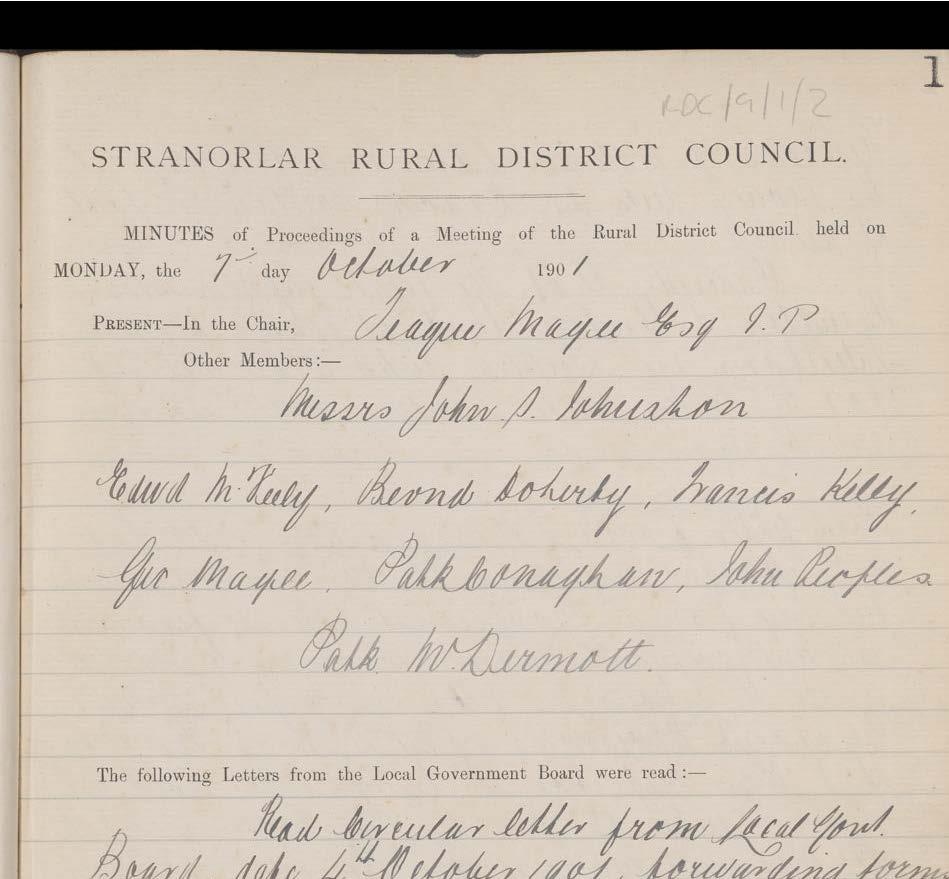 1
RDC/9/1/2
STRANORLAR RURAL DISTRICT COUNCIL.
MINUTES of Proceedings of a Meeting of the Rural District Council held on
MONDAY, the 7th day October 1901
PRESENT—In the Chair, Teague Magee Esq J.P
Other Members:—
Messrs John S. Johnston
Edwd McKeely, Bernd Doherty, Francis Kelly,
Geo Magee, Patk Conaghan, John Peoples
Patk McDermott.
The following Letters from the Local Government Board were read:—
Read Circular letter from Local Govt.
Board date 4th October 1901, forwarding form